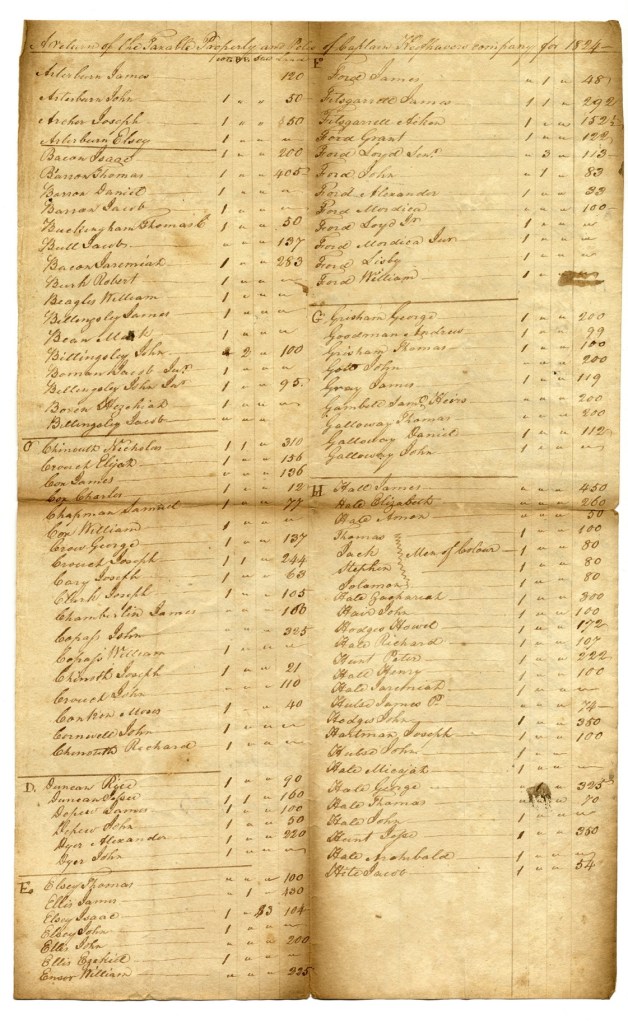 A return of the Taxable Property and Poles of Captain company for 1824
Arterburn James 120
Arterburn John 1 " " 50
Archer Joseph 1 " " 350
Arterburn Elsey 1 " " "
Bacon Isaac 1 " " 200
Barron Thomas " " " 405
Barron Daniel 1 " " "
Barron Jacob 1 " " "
Buckingham Thomas 1 " " 50
Bull Jacob " " " 137
Bacon Jaremiah 1 " " 283
Burk Robert 1 " " "
Beagles William 1 " " "
Billingsley James 1 " " "
Bean 1 " " "
Billingsley John 2 " 100
Boman Jacob 1 " " "
Billingsley John 1 " " 95
Hezekiah 1 " " "
Billingsley Jacob " " "
C Chinouth Nicholas 1 1 " 310
Crouch Elijah 1 " " 156
Cox James " " " 136
Cox Charles 1 " " 12
Chapman Samuel 1 " " 77
Cox William 1 " " "
Crow George 1 " " 137
Crouch Joseph 1 1 " 244
Cary Joseph " " " 63
Clark Joseph 1 " " 105
Chamberlin James " " " 100
Copass John " " " 325
Copass William 1 " " "
Chinouth Joseph 1 " " 21
Crouch John " " " 110
Conken Moses 1 " " 40
Cornwell John 1 " " "
Chinouth Richard 1 " " "
D. Duncan 1 " " 90
Duncan Jesse 1 1 " 160
Depew James 1 " " 100
Depew John 1 " " 50
Dyer Alexander 1 " " 220
Dyer John 1 " " "
E. Elsey Thomas " " " 100
Ellis James " 1 " 430
Elsey Isaac 1 " $3 104
Elsey John 1 " " "
Ellis John " " " 200
Ellis Ezekiel 1 " " "
Ensor William " " " 225
F
Ford James " 1 " 48
Fitsgarrell James 1 1 " 292
Fitsgarrell Ackon 1 " " 152
Ford Grant 1 " " 122
Ford Loyd Senr. " 3 " 113
Ford John " 1 " 83
Ford Alexander 1 " " 33
Ford Mordica " " " 100
Ford Loyd Jr. 1 " " "
Ford Mordica Jur. 1 " " "
Ford Lisby 1 " " "
Ford William 1 " "
G. Grisham George 1 " " 200
Goodman Andrew 1 " " 99
Grisham Thomas 1 " " 100
Gott John " " " 200
Gray James 1 " " 119
Gambill Saml. Heirs " " " 200
Galloway Thomas " " " 200
Galloway Daniel 1 " " 112
Galloway John 1 " " "
H Hall James " " " 450
Hale Elizabeth " " " 260
Hale Amon " " " 50
Thomas 1 " " 100
Jack Men of Colour 1 " " 80
Stephen 1 " " 80
Solomon 1 " " 80
Hale " " " 300
Hair John 1 " " 100
Hodges Howel 1 " " 172
Hale Richard 1 " " 107
Hunt Peter " " " 222
Hale Henry 1 " " 100
Hale Jaremiah 1 " " "
James P. " " " 74
Hodges John 1 " " 350
Hartman Joseph 1 " " 100
John 1 " "
Hale Micajah 1 " "
Hale George " " 325
Hale Thomas " " 70
Hale John 1 " " "
Hunt Jesse 1 " " 350
Hale Archbald 1 " " "
Hite Jacob 1 " " 54